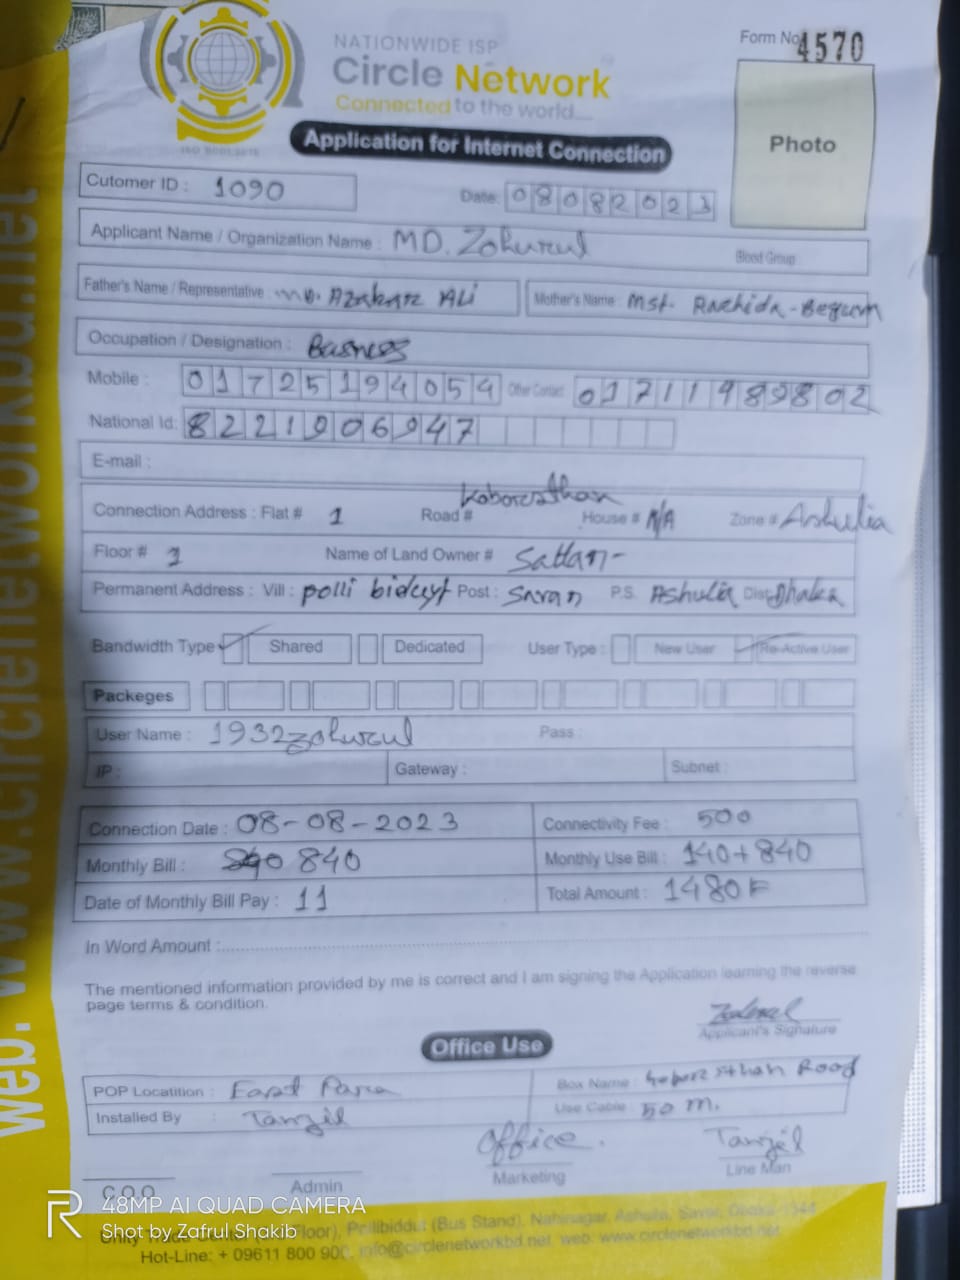 NATIONWIDE ISP
Circle Network
Connected to the world....
ISO 9001:2015
Form No 4570
Photo
Application for Internet Connection
Cutomer ID : 1090
Date: 08082023
Applicant Name / Organization Name : MD. Zohurul
Blood Group :
Father's Name / Representative : MD. Azahar Ali
Mother's Name : Mst. Rachida - Begum
Occupation / Designation : Basness
Mobile : 01725194054 Other Contact: 01711989802
National Id: 8221906947
E-mail :
Connection Address : Flat # 1 Road # Koborsthan House # N/A Zone # Ashulia
Floor # 1 Name of Land Owner # Sattar-
Permanent Address : Vill : polli biduyt Post : Savar P.S. Ashulia Dist: Dhaka
Bandwidth Type Shared Dedicated User Type : New User Re-Active User
Packeges
User Name : 1932zohurul Pass :
IP : Gateway : Subnet :
Connection Date : 08-08-2023 Connectivity Fee : 500
Monthly Bill : 840 Monthly Use Bill : 140+840
Date of Monthly Bill Pay : 11 Total Amount : 1480
In Word Amount :
The mentioned information provided by me is correct and I am signing the Application learning the reverse
page terms & condition.
Applicant's Signature
Office Use
POP Locatition : East Para Box Name : Goborsthan Rood
Installed By : Tanzil Use Cable : 50 m.
Office. Tanzil
C.O.O Admin Marketing Line Man
Floor), Pollibiddut (Bus Stand), Nabinagar, Ashulia, Savar, Dhaka-1344
Hot-Line: + 09611 800 900, info@circlenetworkbd.net web: www.circlenetworkbd.net
web: www.circlenetworkbd.net
48MP AI QUAD CAMERA
Shot by Zafrul Shakib